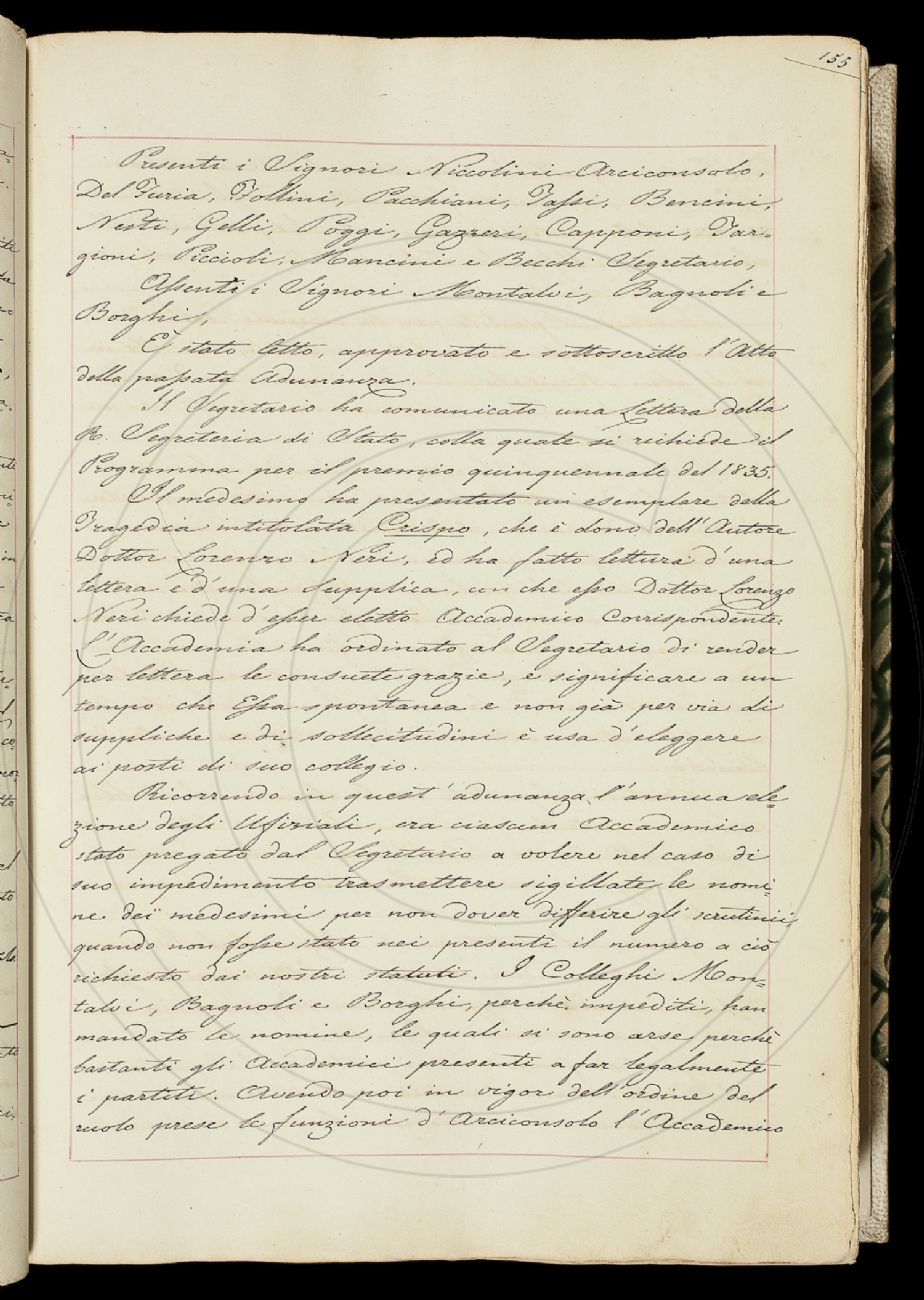 155
Presenti i Signori Niccolini Arciconsolo,
Del Furia, Follini, Pacchiani, Tassi, Bencini,
Nesti, Gelli, Poggi, Gazzeri, Capponi, Tar=
gioni, Piccioli, Mancini e Becchi Segretario,
Assenti i Signori Montalvi, Bagnoli e
Borghi,
È stato letto, approvato e sottoscritto l'Atto
della passata Adunanza.
Il Segretario ha comunicato una Lettera della
R. Segreteria di Stato, colla quale si richiede il
Programma per il premio quinquennale del 1835.
Il medesimo ha presentato un esemplare della
Tragedia intitolata Crispo, che è dono dell'Autore
Dottor Lorenzo Neri, ed ha fatto lettura d'una
lettera e d'una Supplica, con che esso Dottor Lorenzo
Neri chiede d'esser eletto Accademico Corrispondente.
L'Accademia ha ordinato al Segretario di render
per lettera le consuete grazie, e significare a un
tempo che Essa spontanea e non già per via di
suppliche e di sollecitudini è usa d'eleggere
ai posti di suo collegio.
Ricorrendo in quest'adunanza l'annua ele=
zione degli Ufiziali, era ciascun Accademico
stato pregato dal Segretario a volere nel caso di
suo impedimento trasmettere sigillate le nomi=
ne dei medesimi per non dover differire gli scrutinii,
quando non fosse stato nei presenti il numero a ciò
richiesto dai nostri statuti. I Colleghi Mon=
talvi, Bagnoli e Borghi, perchè impediti, han
mandato le nomine, le quali si sono arse, perchè
bastanti gli Accademici presenti a far legalmente
i partiti. Avendo poi in vigor dell'ordine del
ruolo prese le funzioni d'Arciconsolo l'Accademico